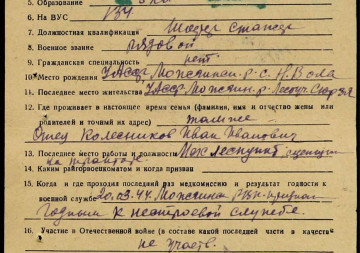 5. Образование
6. На ВУС 134
7. Должностная квалификация
8. Военное звание рядовой
9. Гражданская специальность нет
10. Место рождения УАССР Можгинск. р. с. Н. Вола
11. Последнее место жительства УАССР Можгин. р.
12. Где проживает в настоящее время семья (фамилия, имя и отчество жены или
родителей и точный их адрес) там же
Отец Колесников Иван Иванович
13. Последнее место работы и должность
на тракторе
14. Каким райгорвоенкоматом и когда призван
15. Когда и где проходил последний раз медкомиссию и результат годности к
военной службе 20.09.44. Можгинск РВК признан
годным к нестроевой службе.
16. Участие в Отечественной войне (в составе какой последней части в качестве
не участв.